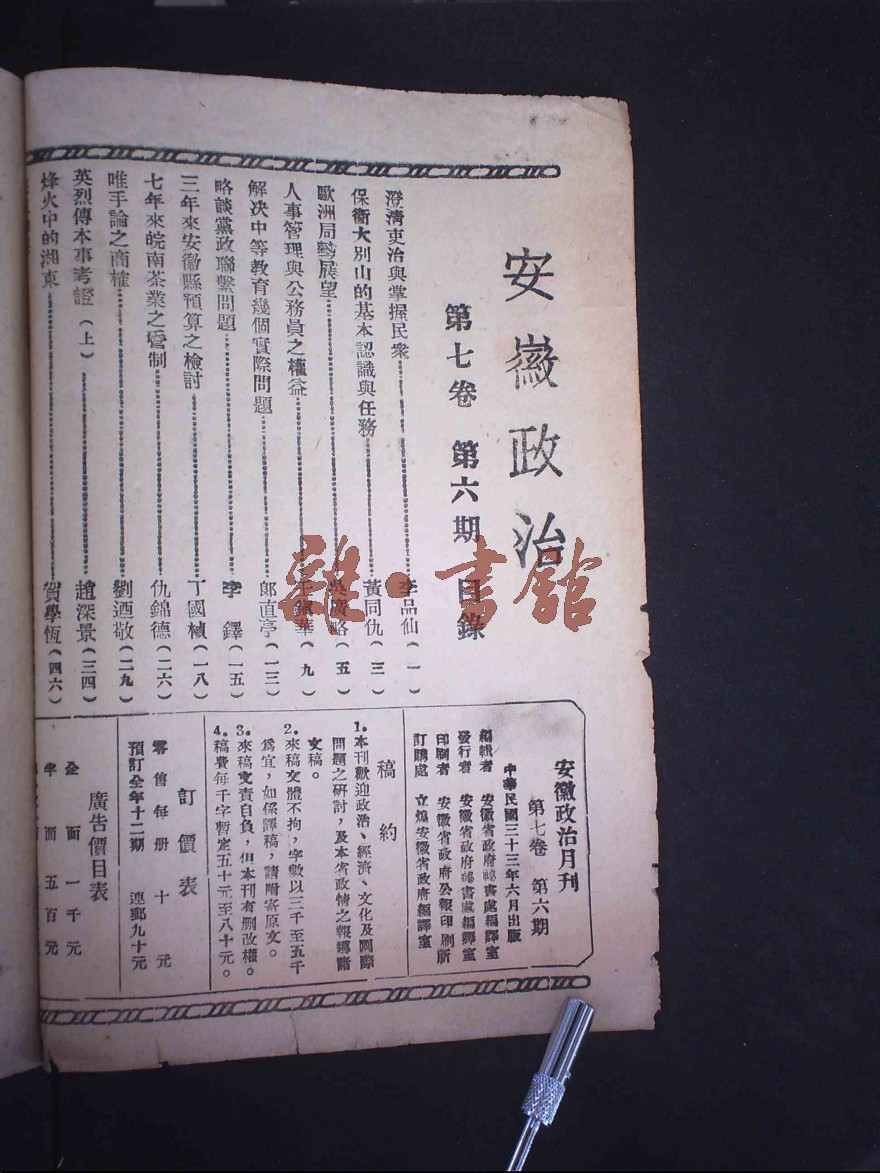 安徽政治
第七卷 第六期 目錄
澄清吏治與掌握民衆……李品仙(一)
保衛大別山的基本認識與任務……黃同仇(三)
歐洲局勢展望……吳廣略(五)
人事管理與公務員之權益……華(九)
解決中等教育幾個實際問題……郞直亭(一三)
略談黨政聯繫問題……李 鐸(一五)
三年來安徽縣預算之檢討……丁國楨(一八)
七年來皖南茶業之管制……仇錦德(二六)
唯手論之商榷……劉迺敬(二九)
英烈傳本事考證(上)……趙深景(三四)
烽火中的湘東……賀學恆(四六)
安徽政治月刊
第七卷 第六期
中華民國三十三年六月出版
編輯者 安徽省政府祕書處編譯室
發行者 安徽省政府祕書處編譯室
印刷者 安徽省政府公報印刷所
訂購處 立煌安徽省政府編譯室
稿約
1.本刊歡迎政治、經濟、文化及國際
問題之研討,及本省政情之報導諸
文稿。
2.來稿文體不拘,字數以三千至五千
爲宜,如係譯稿,請附寄原文。
3.來稿文責自負,但本刊有删改權。
4.稿費每千字暫定五十元至八十元。
訂價表
零售每册 十元
預訂全年十二期 連郵九十元
廣告價目表
全面 一千元
半面 五百元
雜·書館